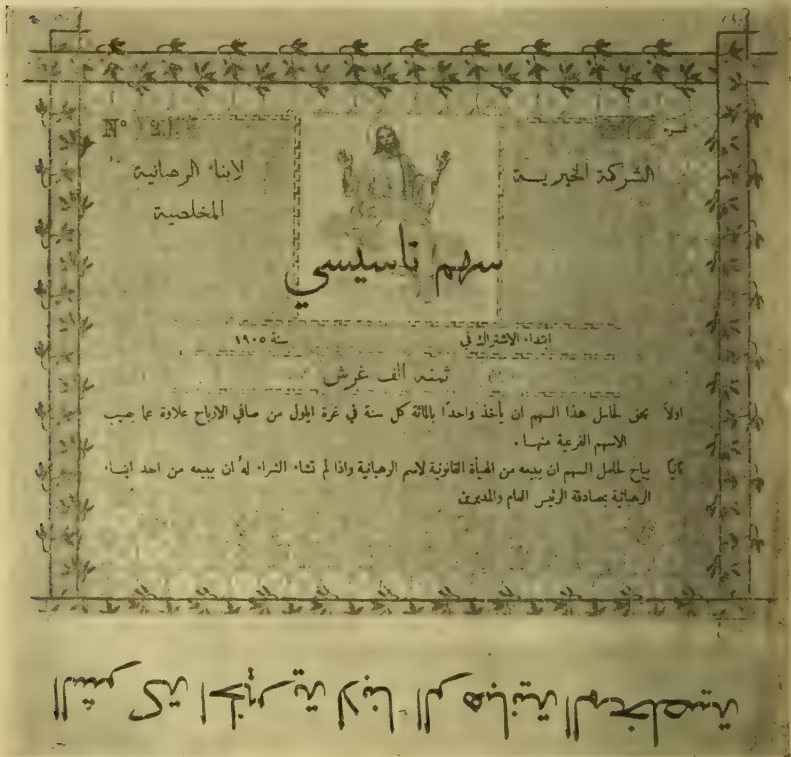 نمرة N°
الشركة الخيرية لابناء الرهبانية
المخلصية
سهم تاسيسي
ابتداء الاشتراك في سنة ١٩٠٥
ثمنه الف غرش
اولاً يحق لحامل هذا السهم ان يأخذ واحدًا بالمائة كل سنة في غرة ايلول من صافي الارباح علاوة عما يصيب
الاسهم الفرعية منها.
ثانيًا يباح لحامل السهم ان يبيعه من الهيأة القانونية لاسم الرهبانية واذا لم تشاء الشراء لهُ ان يبيعه من احد ابناء
الرهبانية بمصادقة الرئيس العام والمدبرين
الشركة الخيرية لابنا الرهبانية المخلصية